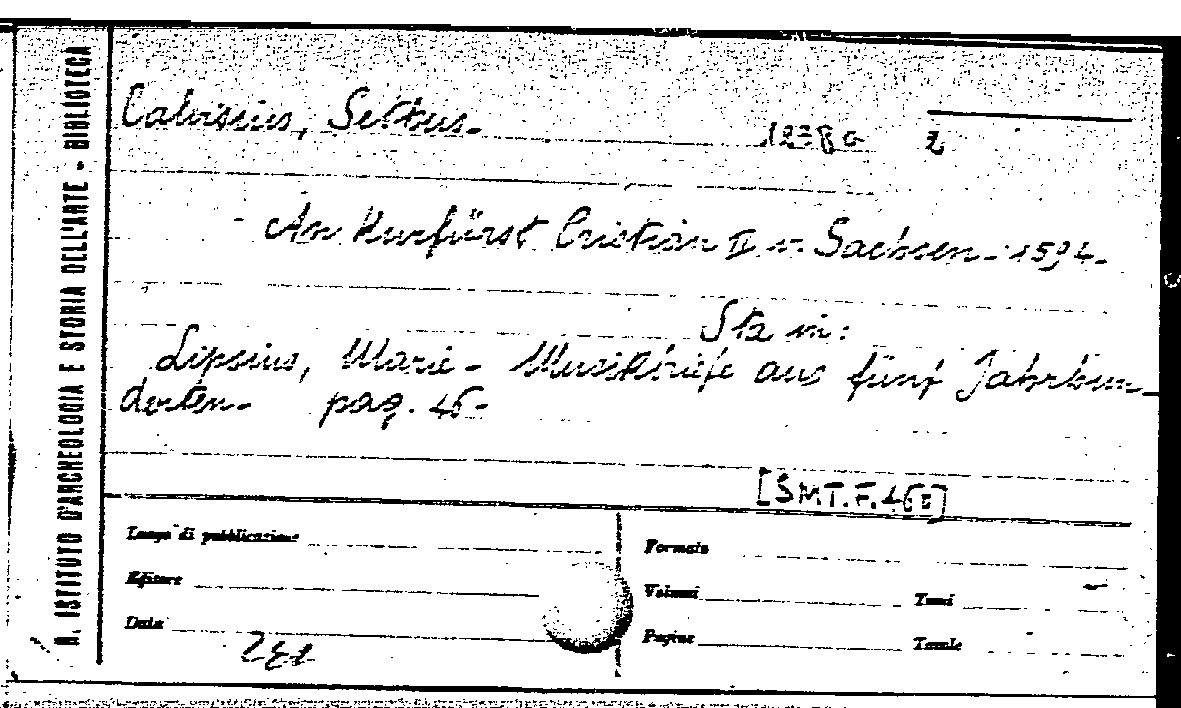 R. ISTITUTO D'ARCHEOLOGIA E STORIA DELL'ARTE - BIBLIOTECA
Calvisius, Sethus-
- An Kurfürst Cristian II v. Sachsen - 1594-
Sta in:
Lipsius, Marie - Musikbriefe aus fünf Jahrhun-
derten- pag. 45-
[SMT.F.46
Luogo di pubblicazione
Formato
Editore
Volumi Tomi
Data
Pagine Tavole